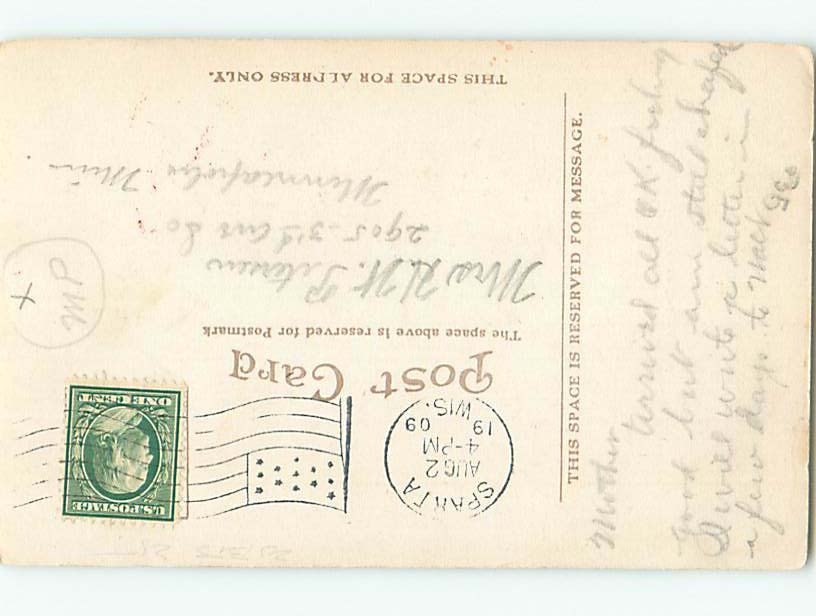 Post Card
The space above is reserved for Postmark
SPARTA
AUG 2
4-PM
19 09
WIS.
U.S. POSTAGE
ONE CENT
Mrs H.W.
2905-3rd Ave So
Minneapolis Minn.
THIS SPACE FOR ADDRESS ONLY.
THIS SPACE IS RESERVED FOR MESSAGE.
Mother
Arrived all OK feeling
good but am
I will write a letter in
a few days to
PM
x